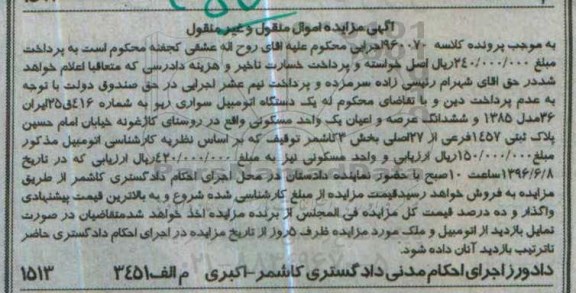 آگهی مزایده اموال منقول و غیر منقول
به موجب پرونده کلاسه ۹۶۰۰۷۰اجرایی محکوم علیه آقای روح اله عشقی کجفته محکوم است به پرداخت
مبلغ ۲۴۰/۰۰۰/۰۰۰ریال اصل خواسته و پرداخت خسارت تاخیر و هزینه دادرسی که متعاقبا اعلام خواهد
شددر حق آقای شهرام رئیسی زاده سرمزده و پرداخت نیم عشر اجرایی در حق صندوق دولت با توجه
به عدم پرداخت دین و با تقاضای محکوم له یک دستگاه اتومبیل سواری ریو به شماره ۴۱۶ق۲۵ایران
۳۶مدل ۱۳۸۵ و ششدانگ عرصه و اعیان یک واحد مسکونی واقع در روستای کارغونه خیابان امام حسین
پلاک ثبتی ۱۴۵۷فرعی از ۲۷اصلی بخش ۳کاشمر توقیف که بر اساس نظریه کارشناسی اتومبیل مذکور
مبلغ۱۵۰/۰۰۰/۰۰۰ریال ارزیابی و واحد مسکونی نیز به مبلغ ۴۳۰/۰۰۰/۰۰۰ریال ارزیابی که در تاریخ
۱۳۹۶/۶/۸ساعت ۱۰صبح با حضور نماینده دادستان در محل اجرای احکام دادگستری کاشمر از طریق
مزایده به فروش خواهد رسیدقیمت مزایده از مبلغ کارشناسی شده شروع و به بالاترین قیمت پیشنهادی
واگذار و ده درصد قیمت کل مزایده فی المجلس از برنده مزایده اخذ خواهد شدمتقاضیان در صورت
تمایل بازدید از اتومبیل و ملک مورد مزایده ظرف ۵روز از تاریخ مزایده در اجرای احکام دادگستری حاضر
تاترتیب بازدید آنان داده شود.
دادورز اجرای احکام مدنی دادگستری کاشمر-اکبری م الف۳۴۵۱ ۱۵۱۳